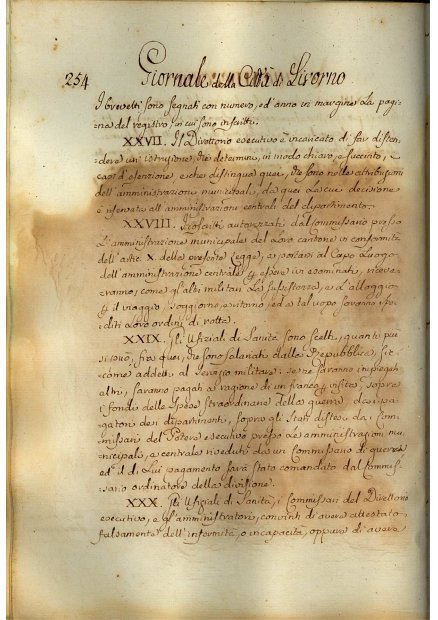 254 Giornale della Città di Livorno
I brevetti sono segnati con numero, ed anno in margine La pagi=
na del registro in cui sono inscritti.
XXVII. Il Direttorio esecutivo è incaricato di far disten=
dere un' istruzione, che determini, in modo chiaro, e succinto, i
casi d'esenzione e che distingua quei, che sono nelle attribuzioni
dell' amministrazioni municipali, da quei La cui decisione
è riservata all' amministrazioni centrali del dipartimento.
XXVIII. I coscritti autorizzati dal Commissario presso
L'amministrazione municipale del Loro cantone in conformità
dell' artic. X. della presente Legge, a portarsi al Capo Luogo
dell' amministrazione centrale per essere ivi esaminati, riceve=
ranno, come gl'altri militari La sussistenza, e L'alloggio
per il viaggio, soggiorno, e ritorno, ed a tal uopo saranno spe=
diti Loro ordini di rotta.
XXIX. Gli Ufiziali di Sanità sono scelti, quanto più
si può, fra quei, che sono salariati dalla Repubblica, sic=
come addetti al servizio militare: se ne saranno impiegati
altri, saranno pagati a ragione di un franco per visita, sopra
i fondi delle spese straordinarie della guerra, dai pa=
gatori dei dipartimenti, sopra gli stati distesi dai Com=
missari del Potere esecutivo presso Le amministrazioni mu=
nicipali, e centrali riveduti da un Commissario di guerra
ed il di Lui pagamento sarà stato comandato dal Commis=
sario ordinatore della divisione.
XXX. Gli Ufiziali di Sanità, i Commissari del Direttorio
esecutivo, e gl'amministratori, convinti di avere attestato
falsamente dell' infermità, o incapacità, oppure di avere